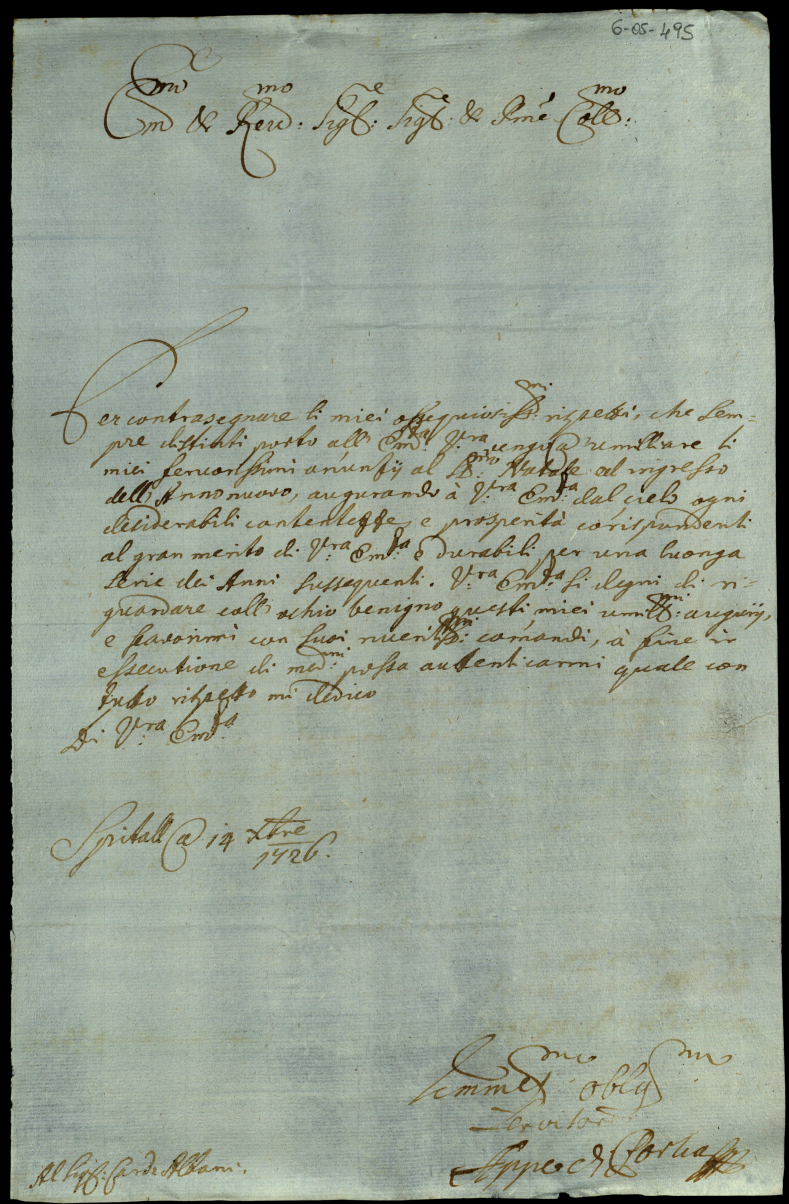 6-05-495
Em.mo & Rev.d:mo Sig.re: Sig.re: & Pnē Coll.mo:
Per contrasegnare li miei ossequiosiss:mi rispetti, che sem-
pre distinti porto all' Em:za V:ra vengo a umiliare li
miei fervorissimi anuntij al S:mo Natale ed ingresso
dell' Anno nuovo, augurando à V:ra Em:za dal cielo ogni
desiderabili contentezze, e prosperità corispondenti
al gran merito di V:ra Em:za e durabili per una luonga
serie dei Anni sussequenti. V:ra Em:za si degni di ri-
guardare coll' ochio benigno questi miei umiliss:mi augurij,
e favorirmi con suoi riveritiss:mi comandi, à fine in
essecutione di med:mi possa autenticarmi quale con
tutto rispetto mi dedico
Di V:ra Em:za
Spitall @ 14 Xbre
1726.
Oblig.mo
Servitore
Porcia
Al Sig.r: Card: Albani.